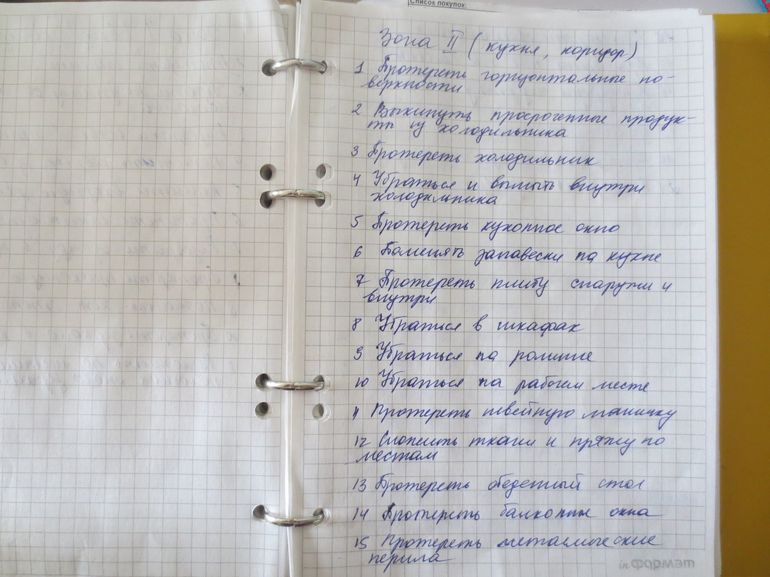 Список покупок
Зона II (кухня, коридор)
1 Протереть горизонтальные по-
верхности
2 Выкинуть просроченные продук-
ты из холодильника
3 Протереть холодильник
4 Убраться и вымыть внутри
холодильника
5 Протереть кухонное окно
6 Поменять занавески на кухне
7 Протереть плиту снаружи и
внутри
8 Убраться в шкафах
9 Убраться на
10 Убраться на рабочем месте
11 Протереть швейную машинку
12 Сложить ткани и пряжу по
местам
13 Протереть обеденный стол
14 Протереть балконные окна
15 Протереть металлические
перила
inформат